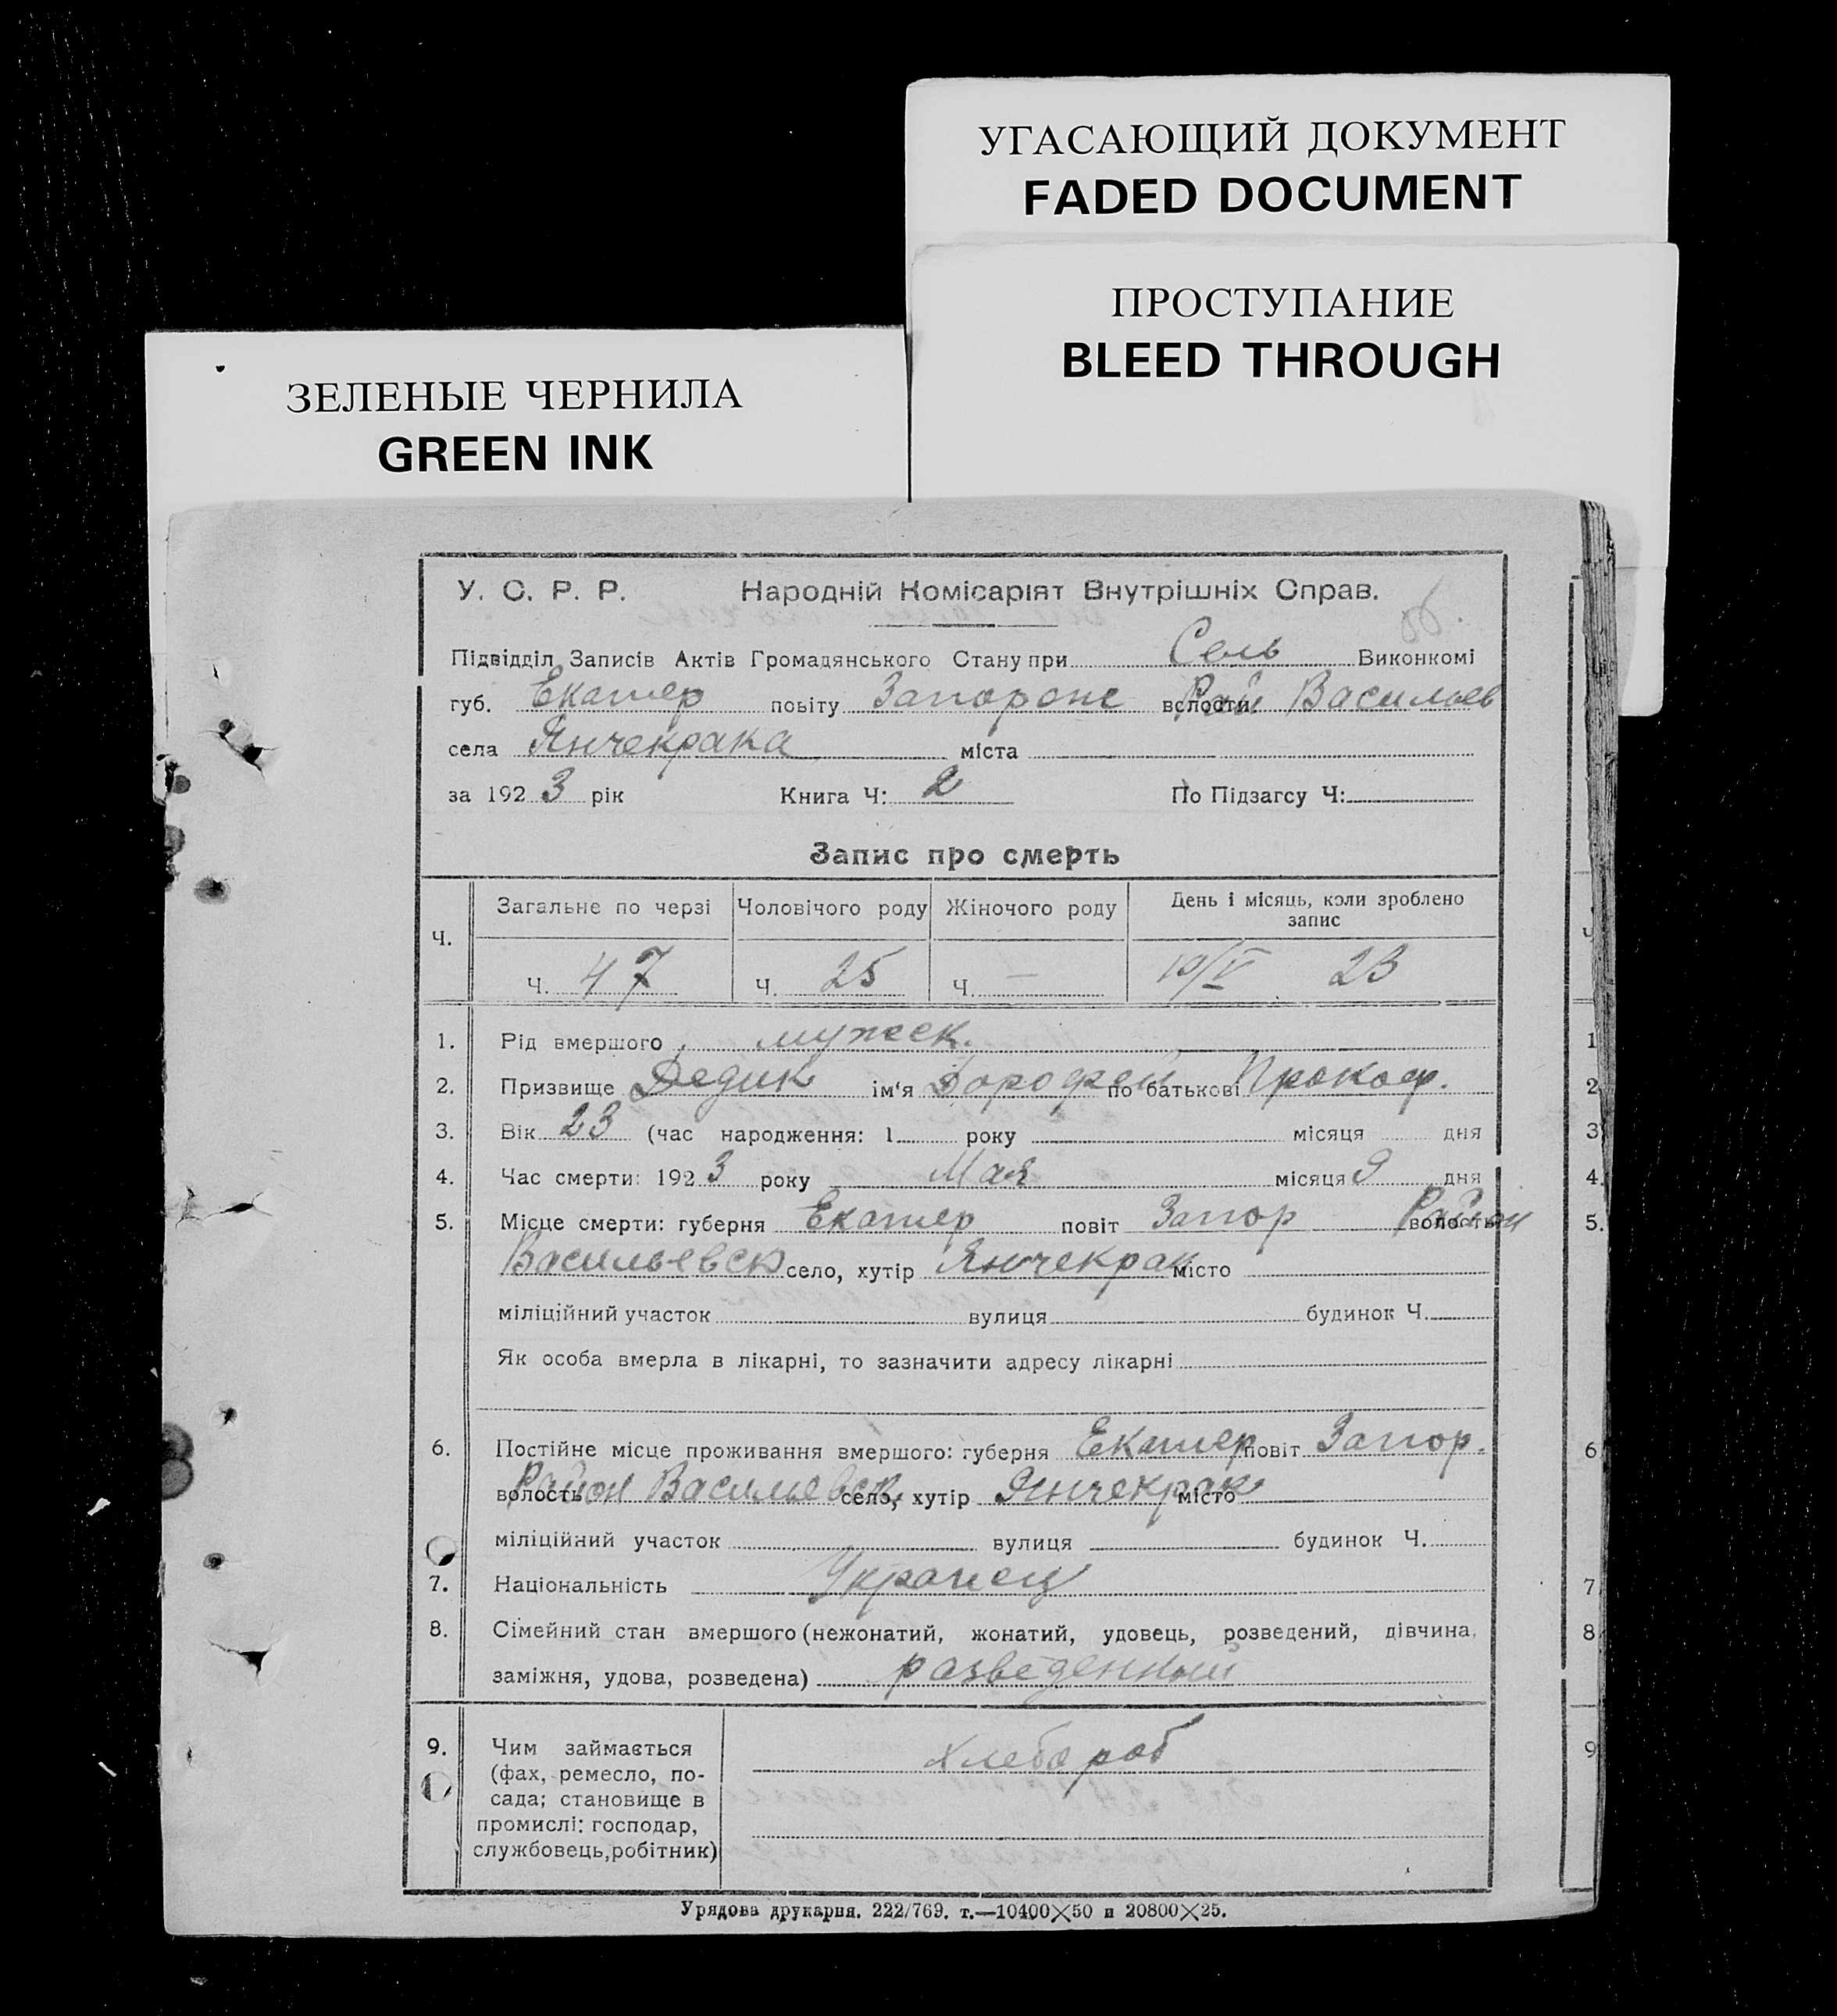 УГАСАЮЩИЙ ДОКУМЕНТ
FADED DOCUMENT
ПРОСТУПАНИЕ
BLEED THROUGH
ЗЕЛЕНЫЕ ЧЕРНИЛА
GREEN INK
У. С. Р. Р. Народній Комісаріят Внутрішніх Справ.
Підвідділ Записів Актів Громадянського Стану при Сель Виконкомі
губ. Екатер повіту Запорож волости Рай Васильев
села Янчекрака міста
за 1923 рік Книга Ч: 2 По Підзагсу Ч:
Запис про смерть
Ч. Загальне по черзі Чоловічого роду Жіночого роду День і місяць, коли зроблено запис
Ч. 47 Ч. 25 Ч. — 10/V 23
1. Рід вмершого мужеск.
2. Призвище Дедик ім'я Дорофей по батькові Прокоф.
3. Вік 23 (час народження: 1 року місяця дня
4. Час смерти: 1923 року Мая місяця 9 дня
5. Місце смерти: губерня Екатер повіт Запор волость Район
Васильевск село, хутір Янчекрак місто
міліційний участок вулиця будинок Ч.
Як особа вмерла в лікарні, то зазначити адресу лікарні
6. Постійне місце проживання вмершого: губерня Екатер повіт Запор.
волость Район Васильевск. село, хутір Янчекрак місто
міліційний участок вулиця будинок Ч.
7. Національність Украінец
8. Сімейний стан вмершого (нежонатий, жонатий, удовець, розведений, дівчина,
заміжня, удова, розведена) разведенный
9. Чим займається хлебороб
(фах, ремесло, по-
сада; становище в
промислі: господар,
службовець, робітник)
Урядова друкарня. 222/769. т.—10400×50 и 20800×25.
1
2
3
4.
5.
6
7
8
9